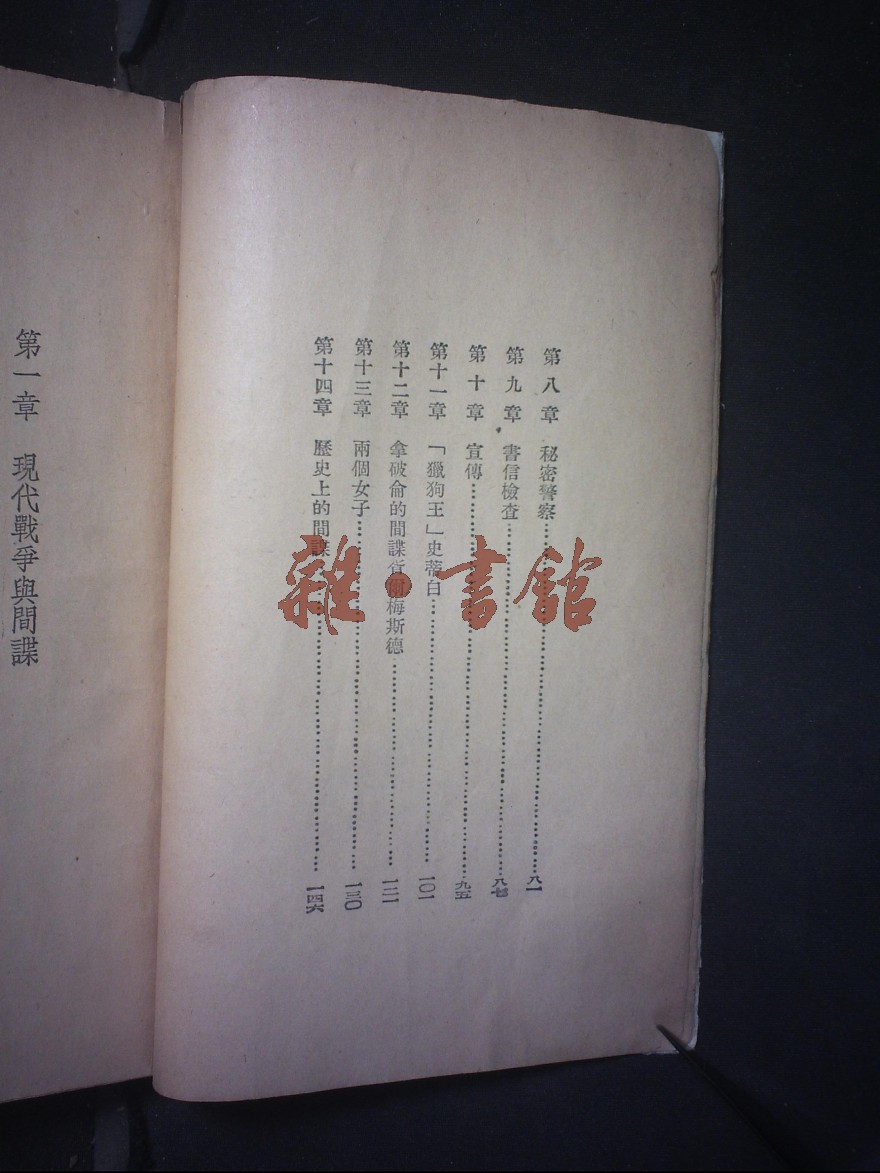 第八章　秘密警察……八一
第九章　書信檢查……八七
第十章　宣傳……九五
第十一章　「獵狗王」史蒂白……一〇一
第十二章　拿破侖的間諜　爾梅斯德……一二一
第十三章　兩個女子……一三〇
第十四章　歷史上的間諜……一四六
第一章　現代戰爭與間諜
雜·書館